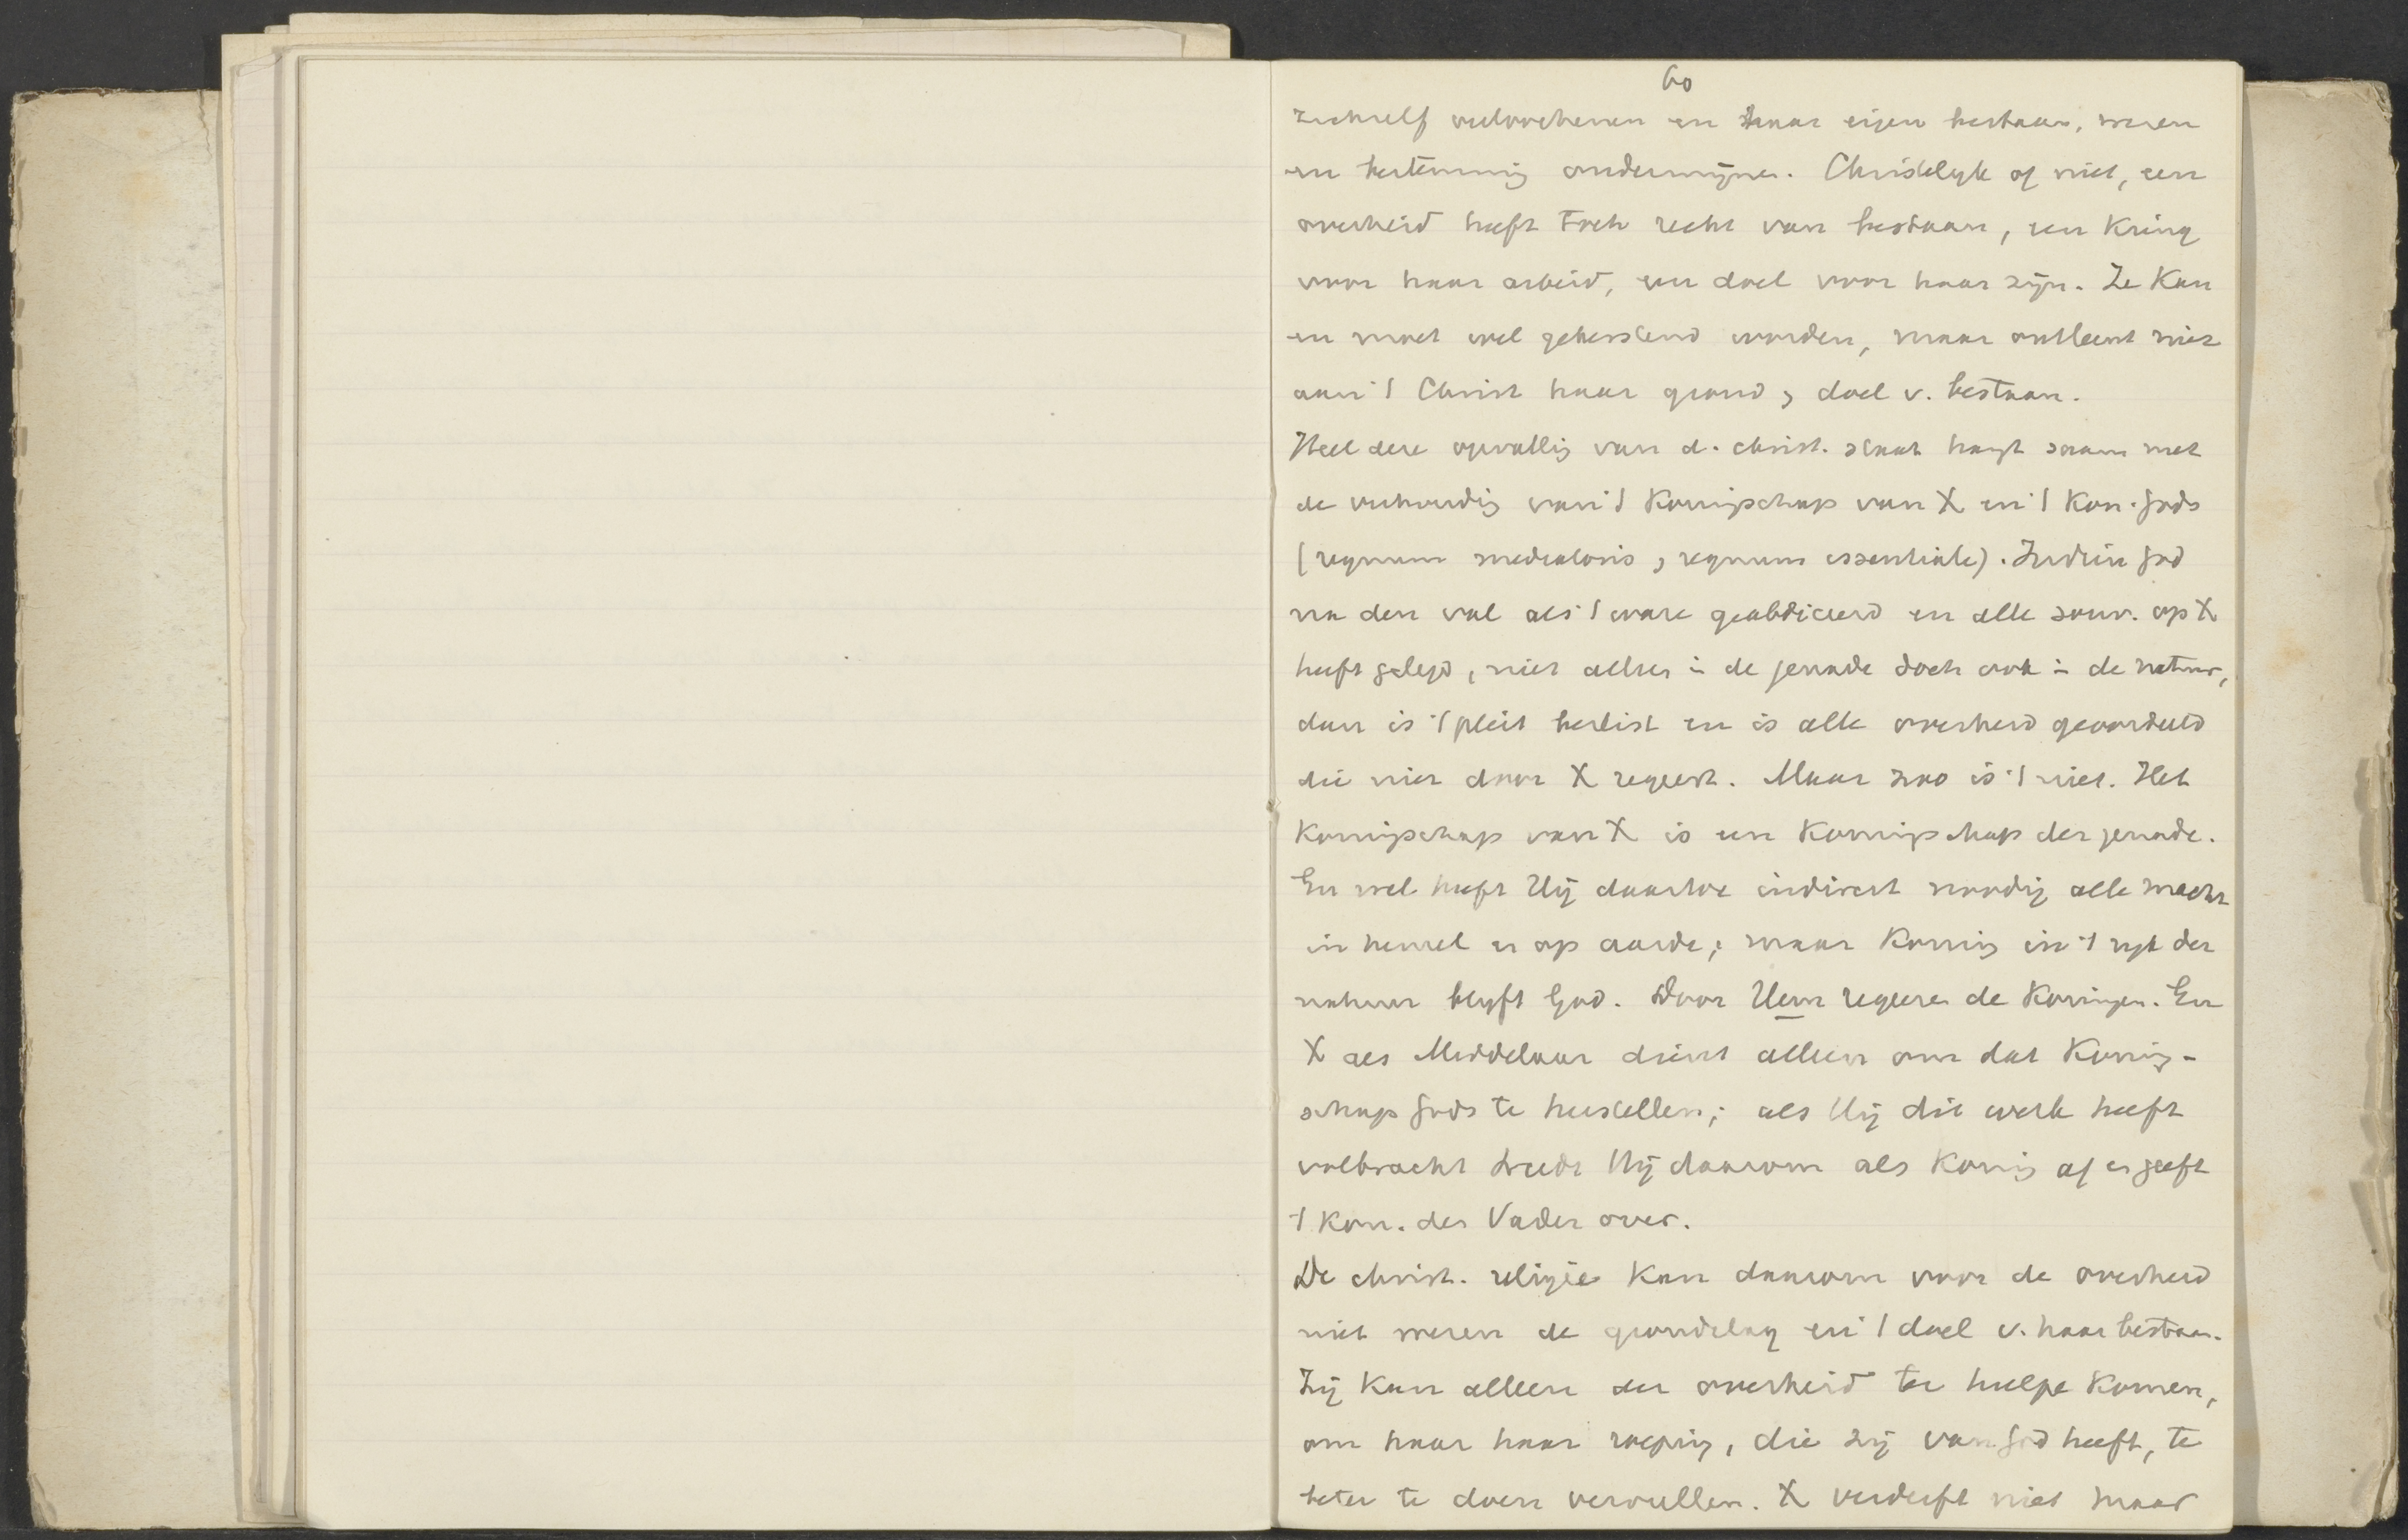 60
zichzelf verloochenen en haar eigen bestaan, wezen
en bestemming ondermijnen. Christelyk of niet, een
overheid heeft toch recht van bestaan, een Kring
voor haar arbeid, een doel voor haar zijn. Ze Kan
en moet wel gekerstend worden, maar ontleent niet
aan 't Christ haar grond, doel v. bestaan.
Heel deze opvattig van d. christ. staat hangt saam met
de verhoudig van 't Koningschap van X en 't Kon. Gods
(regnum mediatoris, regnum essentiale). Indien God
na den val als 't ware geabdiceerd en alle souv. op X
heeft gelegd, niet alleen in de genade doch ook in de natuur,
dan is 't pleit beslist en is alle overheid geoordeeld
die niet door X regeert. Maar zoo is 't niet. Het
Koningschap van X is een Koningschap der genade.
En wel heeft Hij daartoe indirect noodig alle macht
in hemel en op aarde; maar Koning in 't ryk der
natuur blyft God. Door Hem regeeren de Koningen. En
X als Middelaar dient alleen om dat Koning-
schap Gods te herstellen; als Hij dit werk heeft
volbracht treedt Hij daarom als Koning af en geeft
't Kon. den Vader over.
De christ. religie Kan daarom voor de overheid
niet wezen de grondslag en 't doel v. haar bestaan.
Zij Kan alleen der overheid te hulpe Komen,
om haar haar roeping, die zij van God heeft, te
beter te doen vervullen. X verderft niet maar